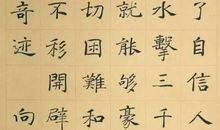 了自人
水擊三千
就能够豪
切困難和
不移開辟
奇迹向